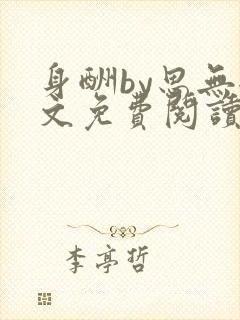 身酬by思無
文免費閱讀
李亭哲